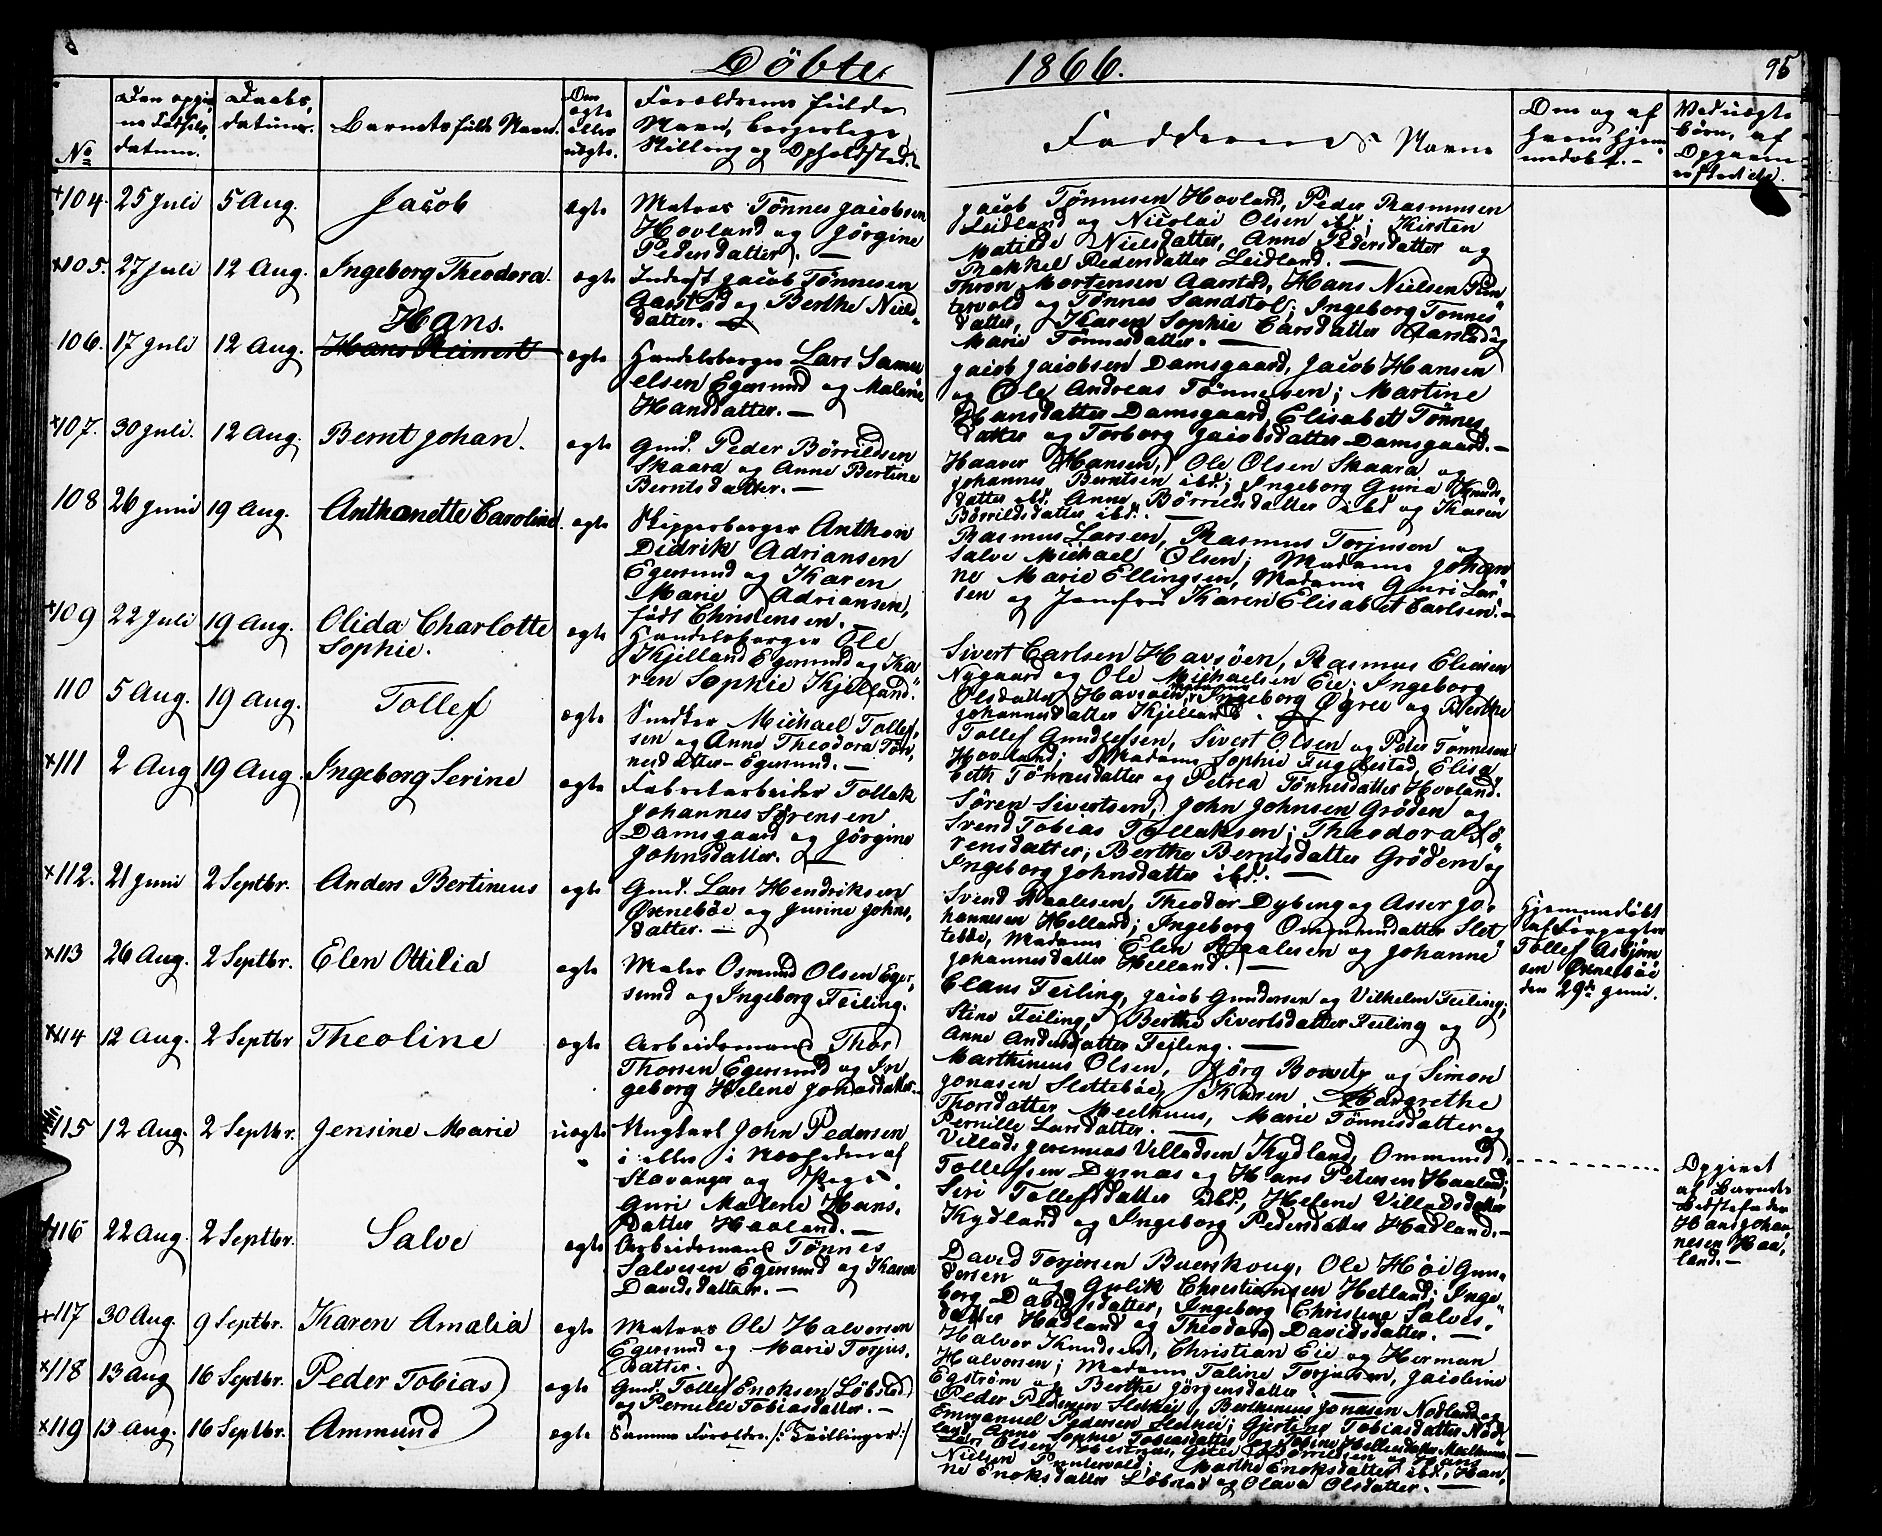 Döbte 1866. 95
No
Den opgivne Fødsels datum.
Daabs datum.
Barnets fulde Navn.
Om ægte eller uægte.
Forældrenes fulde Navn, borgerlige Stilling og Opholdsted.
Faddernes Navne
Om og af hvem hjemmedøbt.
Ved uægte Børn, af Opgaven
104. 25 Juli 5 Aug. Jacob ægte
Matros Tönnes Jacobsen
Hovland og Jörgine
Pedersdatter. —
Jacob Tönnesen Hovland, Peder Rasmussen
Leidland og Nicolai Olsen ibd; Kirsten
Matilde Nielsdatter, Anne Pedersdatter og
Rakkel Pedersdatter Leidland. —
105. 27 Juli 12 Aug. Ingeborg Theodora. ægte
Inderst Jacob Tönnesen
Aarstad og Berthe Niels-
datter. —
Mortensen Aarstad, Hans Nielsen
og Tönnes Sandstöl; Ingeborg Tönnes
datter, Karen Sophie Larsdatter Aarstad og
Marie Tönnesdatter. —
106. 17 Juli 12 Aug. Hans. ægte
Handelsborger Lars Samu
elsen Egersund og Malene
Hansdatter. —
Jacob Jacobsen Damsgaard, Jacob Hansen
og Ole Andreas Tönnesen; Martine
Hansdatter Damsgaard, Elisabeth Tönnes
datter og Torborg Jacobsdatter Damsgaard. —
107. 30 Juli. 12 Aug. Bernt Johan. ægte
Gmd. Peder Börrildsen
Skaara og Anne Bertine
Berntsdatter. —
Haaver Hansen, Ole Olsen Skaara og
Johannes Berntsen ibd.; Ingeborg Guria Knuds
datter ibd. Anne Börrildsdatter ibd og Karen
Börrildsdatter ibd. —
108 26 Juni 19 Aug. Anthonette Caroline. ægte
Skipperborger Anthon
Didrik Adriansen
Egersund og Karen
Marie Adriansen,
født Christensen.
Rasmus Larsen, Rasmus Torjusen og
Salve Michael Olsen; Madame Johan
ne Marie Ellingsen, Madame Guri Lar
sen og Jomfru Karen Elisabet Carlsen. —
109 22 Juli 19 Aug. Olida Charlotte ægte
Sophie.
Handelsborger Ole
Kjelland Egersund og Ka
ren Sophie Kjelland.
Sivert Carlsen Havsöen, Rasmus Eliasen
Nygaard og Ole Michaelsen Eie; Ingeborg
Olsdatter Havsöen, Ingeborg Øgree og Berthe
Johannesdatter Kjelland.
110 5 Aug. 19 Aug. Tollef ægte
Snedker Michael Tollef-
sen og Anne Theodora Tön-
nesdatter Egersund. —
Tollef Gundlefsen, Sivert Olsen og Peter Tönnesen
Hovland; Madame Sophie Fuglestad, Elisa
beth Tönnesdatter og Petrea Tönnesdatter Hovland.
111 2 Aug 19 Aug. Ingeborg Serine ægte
Fabrikarbeider Tollak
Johannes Sörensen
Damsgaard og Jörgine
Johnsdatter. —
Sören Sivertsen, John Johnsen Gröden og
Svend Tobias Tollaksen; Theodora Sö
rensdatter, Berthe Berntsdatter Grödem og
Ingeborg Johnsdatter ibd. —
112. 21 Juni 2 Septbr. Anders Bertineus ægte
Gmd. Lars Hendriksen
Ørnebøe og Jurine Johns,
datter. —
Svend Paalesen, Theodor Dybing og Asser Jo-
hannesen Helland; Ingeborg Ommundsdatter Slet
tebøe, Madame Elen Paalesen og Johanne
Johannesdatter Helland. —
Hjemmedøbt
af Forpagter
Tollef Asbjørn
sen Ørnebøe
den 29de Juni.
113 26 Aug. 2 Septbr. Elen Ottilia ægte
Maler Osmund Olsen Eger,
sund og Ingeborg Feiling.
Claus Feiling, Jacob Gundersen og Vilhelm Feiling;
Stine Feiling, Berthe Sivertsdatter Feiling og
Anne Andersdatter Feiling. —
114 12 Aug. 2 Septbr Theoline ægte
Arbeidsmand Thor
Thorsen Egersund og In
geborg Helene Jonasdatter. —
Marthineus Olsen, Jörg Bowitz og Simon
Jonasen Slettebøe, Karen Margrethe
Thorsdatter Meelhuus, Marie Tönnesdatter og
Pernille Larsdatter. —
115 12 Aug. 2 Septbr. Jensine Marie uægte
Ungkarl John Pedersen
i eller i Nærheden af
Stavanger og Pige
Guri Malene Hans,
datter Haaland. —
Villads Jeremias Villadsen Kydland, Ommund
Tollefsen Dysnæs og Hans Petersen Haaland;
Siri Tollefsdatter ibd., Helene Villadsdatter
Kydland og Ingeborg Pedersdatter Haaland. —
Opgivet
af Barnets
Bedstefader
Hans Johan
nesen Haa,
land. —
116 22 Aug. 2 Septbr. Salve ægte
Arbeidsmand Tönnes
Salvesen Egersund og Karen
Davidsdatter. —
David Torjersen Buerskoug, Ole Höi Gun-
dersen og Gulik Christiansen Hetland; Inge
borg Davidsdatter, Ingeborg Christine Salves,
datter Hadland og Theodora Davidsdatter. —
117 30 Aug. 9 Septbr. Karen Amalia ægte
Matros Ole Halvorsen
Egersund og Marie Torjus,
datter.
Halvor Knudsen, Christian Eie og Herman
Halvorsen; Madame Taline Torjusen,
Egström og Berthe Jörgensdatter. —
118 13 Aug 16 Septbr. Peder Tobias ægte
Gmd. Tollef Enoksen Löbstad
og Pernille Tobiasdatter. —
Peder Pedersen Sletheie, Berthineus Jonasen Nodland og
Emmanuel Pedersen Sletheie; Gjertine Tobiasdatter Nod
land, Anne Sophie Tobiasdatter og
119 13 Aug. 16 Septbr. Ammund ægte
Samme Forældre /: Tvillinger :/
Lars Olsen Hestnæs, Börrildsen og Hans
Nielsen; Marthe Enoksdatter ibd., Han,
ne Enoksdatter Löbstad og Olava Olsdatter. —